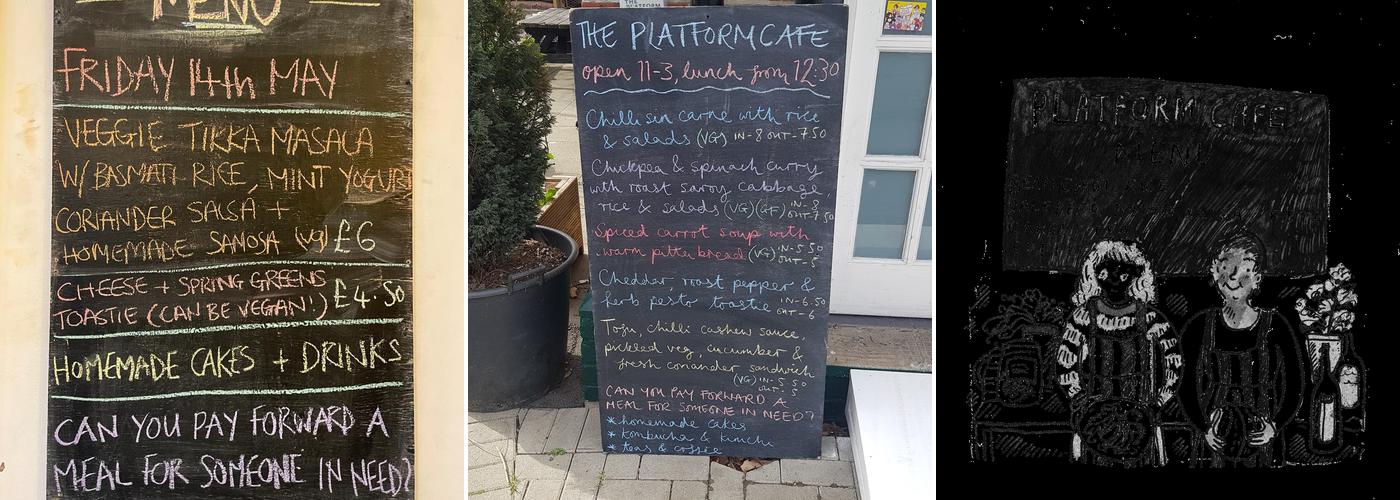 MENU
FRIDAY 14th MAY
VEGGIE TIKKA MASALA
W/ BASMATI RICE, MINT YOGURT
CORIANDER SALSA +
HOMEMADE SAMOSA (vg) £6
CHEESE + SPRING GREENS
TOASTIE (CAN BE VEGAN!) £4.50
HOMEMADE CAKES + DRINKS
CAN YOU PAY FORWARD A
MEAL FOR SOMEONE IN NEED?
THE PLATFORM CAFE
open 11-3, lunch from 12:30
Chilli sin carne with rice
& salads (VG) IN-8 OUT-7.50
Chickpea & spinach curry
with roast savoy cabbage,
rice & salads (VG) (GF) IN-8
OUT-7.50
Spiced carrot soup with
warm pitta bread (VG) IN-5.50
OUT-5
Cheddar, roast pepper &
herb pesto toastie IN-6.50
OUT-6
Tofu, chilli cashew sauce,
pickled veg, cucumber &
fresh coriander sandwich
(VG) IN-5.50
OUT-5
CAN YOU PAY FORWARD A
MEAL FOR SOMEONE IN NEED?
* homemade cakes
* kombucha & kimchi
* teas & coffee
PLATFORM CAFE
MENU